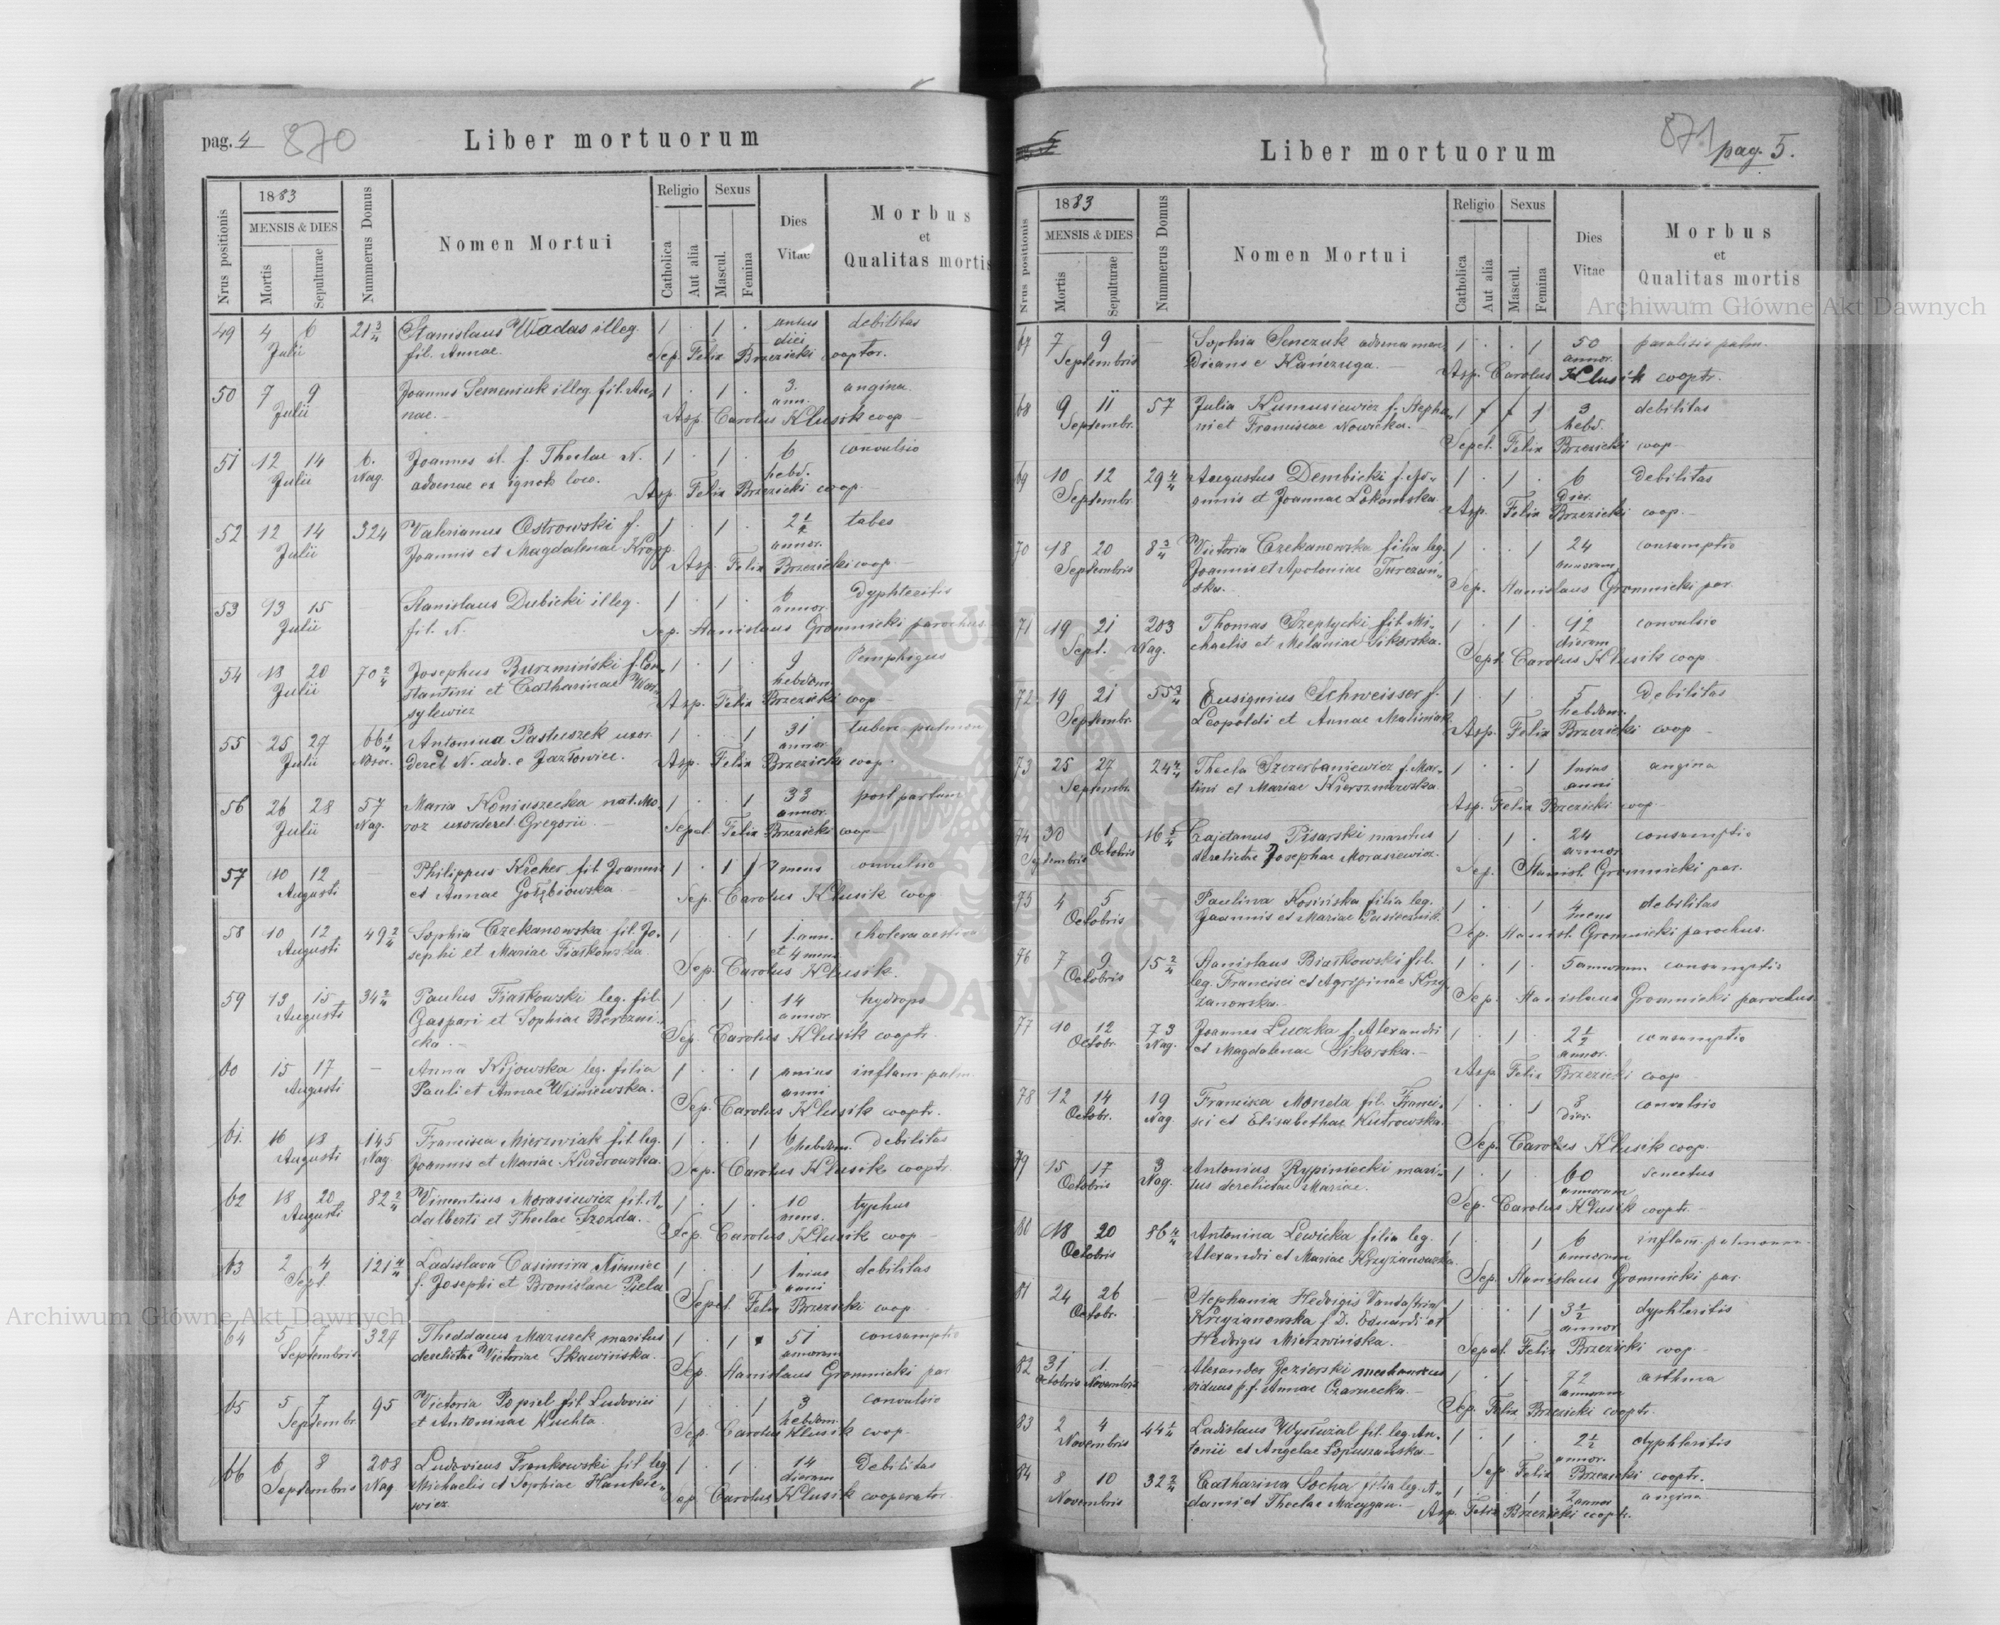 pag. 4 870
Liber mortuorum
Nrus positionis
1883
MENSIS & DIES
Mortis
Sepulturae
Nummerus Domus
Nomen Mortui
Religio
Catholica
Aut alia
Sexus
Mascul.
Femina
Dies
Vitae
Morbus
et
Qualitas mortis
49 4 6 21 3/4 Stanislaus Wadas illeg. 1 . 1 . unius debilitas
Julii fil. Annae. diei
Sep. Felix Brzezicki cooptor.
50 7 9 Joannes Semeniuk illeg. fil. An- 1 . 1 . 3. angina.
Julii nae. ann.
Asp. Carolus Klusik coop
51 12 14 6. Joannes il. f. Theclae N. 1 . 1 . 6 convulsio
Julii Nag. advenae ex ignot. loco. hebd.
Asp. Felix Brzezicki coop
52 12 14 324 Valerianus Ostrowski f. 1 . 1 . 2 1/2 tabes
Julii Joannis et Magdalenae Kropp annor.
Asp. Felix Brzezicki coop
53 13 15 Stanislaus Dubicki illeg. 1 . 1 . 6 dyphteritis
Julii fil. N. annor.
Sep. Stanislaus Gromnicki parochus
54 18 20 70 2/4 Josephus Burzmiński f. Con- 1 . 1 . 9 Pemphigus
Julii stantini et Catharinae Was- hebdom.
sylewicz Asp. Felix Brzezicki coop
55 25 27 66 Antonina Pastuszek uxor 1 . . 1 31 tuberc. pulmon
Julii derel N. adv. e Jazłowiec. annor
Asp. Felix Brzezicki coop.
56 26 28 57 Maria Koniuszecka nat. Mo- 1 . . 1 33 post partum
Julii Nag. roz uxor derel. Gregorii. annor.
Sepel. Felix Brzezicki coop
57 10 12 — Philippus Kicher fil Joannis 1 . 1 7 mens convulsio
Augusti et Annae Gołębiowska.
Sep. Carolus Klusik coop
58 10 12 49 2/4 Sophia Czekanowska fil. Jo- 1 . . 1 1. ann. cholera aestiva
Augusti sephi et Mariae Fiałkowska et 4 mens
Sep. Carolus Klusik.
59 13 15 34 2/4 Paulus Fiałkowski leg. fil. 1 . 1 . 14 hydrops
Augusti Gaspari et Sophiae Berezni- annor.
cka. Sep. Carolus Klusik cooptr.
60 15 17 — Anna Kijowska leg. filia 1 . . 1 unius inflam. pulm.
Augusti Pauli et Annae Wiśniewska. anni
Sep. Carolus Klusik cooptr.
61. 16 18 145 Francisca Mierzwiak fil. leg. 1 . . 1 6 hebdom. debilitas
Augusti Nag. Joannis et Mariae Kudrowska.
Sep. Carolus Klusik cooptr.
62 18 20 82 2/4 Vincentius Morasiewicz fil. A- 1 . 1 . 10 typhus
Augusti dalberti et Theclae Szozda. mens.
Sep. Carolus Klusik coop
63 2 4 121 4/4 Ladislava Casimira Niemiec 1 . . 1 unius debilitas
Sept f. Josephi et Bronislavae Piela anni
Sepel. Felix Brzezicki coop
64 5 7 327 Thaddaeus Mazurek maritus 1 . 1 . 51 consumptio
Septembris derelictae Victoriae Skawińska. annorum
Sep. Stanislaus Gromnicki par
65 5 7 95 Victoria Popiel fil Ludovici 1 . . 1 3 convulsio
Septembr. et Antoninae Kuchta. hebdom.
Sep. Carolus Klusik coop.
66 6 8 208 Ludovicus Frankowski fil leg 1 . 1 . 14 Debilitas
Septembris Nag Michaelis et Sophiae Hankie- dierum
wicz. Sep. Carolus Klusik cooperator
871 pag. 5.
Liber mortuorum
Nrus positionis
1883
MENSIS & DIES
Mortis
Sepulturae
Nummerus Domus
Nomen Mortui
Religio
Catholica
Aut alia
Sexus
Mascul.
Femina
Dies
Vitae
Morbus
et
Qualitas mortis
67 7 9 — Sophia Senczuk advena men- 1 . . 1 50 paralisis pulm.
Septembris dicans e Kańczuga. annor.
Asp. Carolus Klusik cooptr.
68 9 11 57 Julia Kumusiewicz f. Stepha- 1 1 3 debilitas
Septembr. ni et Franciscae Nowicka. hebd.
Sepel. Felix Brzezicki coop
69 10 12 29 4/4 Augustus Dembicki f. Jo- 1 . 1 . 6 Debilitas
Septembr annis et Joannae Łokomska. Dier.
Asp. Felix Brzezicki coop.
70 18 20 8 3/4 Victoria Czekanowska filia leg. 1 . . 1 24 consumptio
Septembris Joannis et Apoloniae Turczań- annorum
ska. Sep. Stanislaus Gromnicki par.
71 19 21 203 Thomas Szeptycki fil. Mi- 1 . 1 . 12 convulsio
Sept. Nag. chaelis et Melaniae Sikorska. dierum
Sept. Carolus Klusik coop
72 19 21 55 Eusignius Schweisser f. 1 . 1 . 5 Debilitas
Septembr. Leopoldi et Annae Maliniak hebdom.
Asp. Felix Brzezicki coop
73 25 27 24 4/4 Thecla Szczerbaniewicz f. Mar- 1 . . 1 unius angina
Septembr. tini et Mariae Kierszniewska anni
Asp. Felix Brzezicki coop.
74 30 1 16 Cajetanus Pisarski maritus 1 . 1 . 24 consumptio
Septembris Octobris derelictae Josephae Morasiewicz. annor
Sep. Stanisl. Gromnicki par.
75 4 5 Paulina Kosińska filia leg. 1 . . 1 4 debilitas
Octobris Joannis et Mariae Pasiecznik. mens
Sep. Stanisl. Gromnicki parochus.
76 7 9 15 2/4 Stanislaus Białkowski fil. 1 . 1 . 5 annorum consumptio
Octobris leg. Francisci et Agripinae Krzy-
żanowska. Sep. Stanislaus Gromnicki parochus
77 10 12 73 Joannes Luczka f. Alexandri 1 . 1 . 2 1/2 consumptio
Octobr. Nag. et Magdalenae Sikorska. annor.
Asp Felix Brzezicki coop
78 12 14 19 Francisca Moneta fil. Franci- 1 . . 1 8 convulsio
Octobr. Nag. sci et Elisabethae Kutrowska. dier.
Sep. Carolus Klusik coop.
79 15 17 3 Antonius Rypiniecki mari- 1 . 1 . 60 senectus
Octobris Nag. tus derelictae Mariae. annorum
Sep. Carolus Klusik cooptr.
80 18 20 86 4/4 Antonina Lewicka filia leg. 1 . . 1 6 inflam. pulmonum
Octobris Alexandri et Mariae Krzyżanowska. annorum
Sep. Stanislaus Gromnicki par.
81 24 26 — Stephania Hedvigis Vanda
Octobr. Krzyżanowska f. D. Eduardi et 1 . . 1 3 1/2 dyphteritis
Hedvigis Mierzwińska. annor
Sepel. Felix Brzezicki coop
82 31 1. — Alexander Jezierski 1 . 1 . 72 asthma
Octobris Novembris viduus p. f. Annae Czarnecka. annorum
Sep. Felix Brzezicki cooptr.
83 2 4 44 Ladislaus Wystużal fil. leg. An- 1 . 1 . 2 1/2 dyphteritis
Novembris tonii et Angelae Łopuszańska. annor.
Sep Felix Brzezicki cooptr.
84 8 10 32 2/4 Catharina Socha filia leg. A- 1 . . 1 2 annor angina
Novembris dami et Theclae Macygan.
Asp. Felix Brzezicki cooptr.
Archiwum Główne Akt Dawnych
Archiwum Główne Akt Dawnych